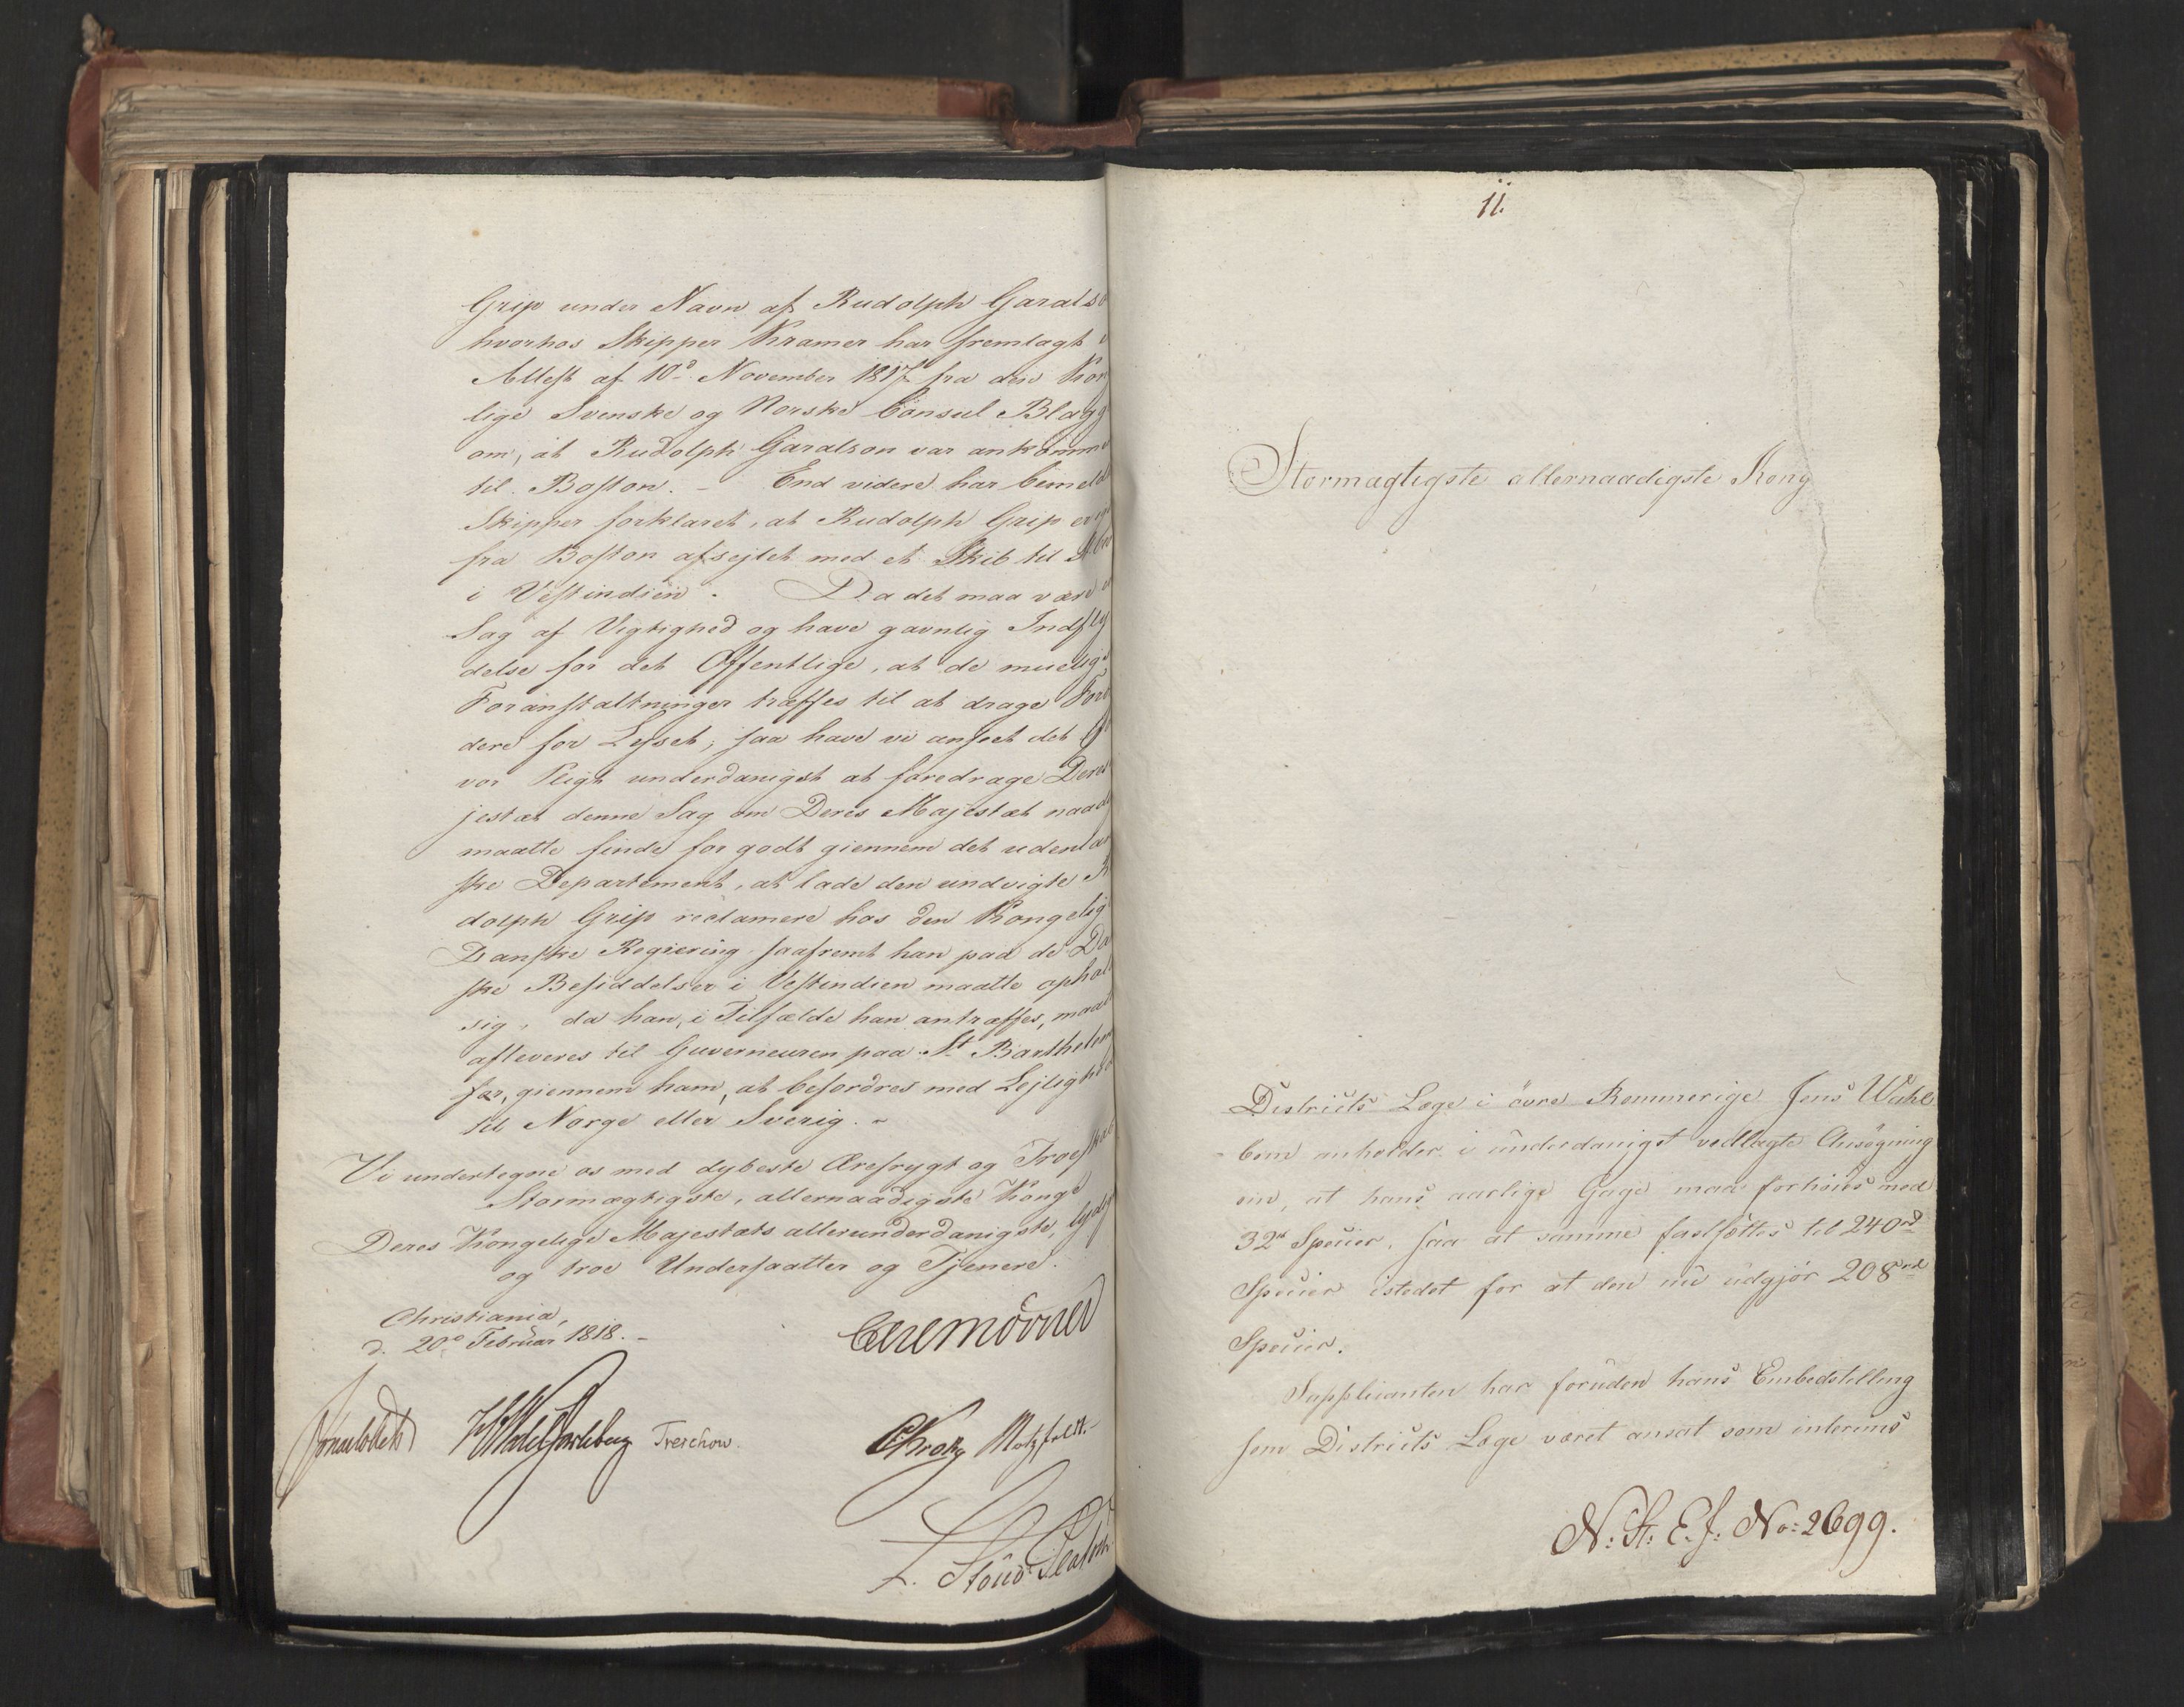 Grip under Navn af Rudolph Garalso
hvorhos Skipper Kramer har fremlagt
Attest af 10de November 1817 fra den Kon
lige Svenske og Norske Consul Blagg
om, at Rudolph Garalson var ankomme
til Boston. – End videre har bemeld
Skipper forklaret, at Rudolph Grip er
fra Boston afsejlet med et Skib til St
i Vestindien. Da det maa være
Sag af Vigtighed og have gavnlig Indfly
delse for det Offentlige, at de muelige
Foranstaltninger træffes til at drage For
dere for Lyset; saa have vi anseet det
vor Pligt underdanigst at foredrage Deres
jestæt denne Sag om Deres Majestæt naad
maatte finde for godt giennem det udenlan
ske Departement, at lade den undvigte R
dolph Grip reclamere hos den Kongelig
Danske Regiering saafremt han paa de Da
ske Besiddelser i Vestindien maatte ophol
sig, da han, i Tilfælde han antræffes, maat
afleveres til Guverneuren paa St Barthelem
for, giennem ham, at befordres med Lejlighed
til Norge eller Sverig. –
Vi undertegne os med dybeste Ærefrygt og Troeskab
Stormægtigste, allernaadigste Konge
Deres Kongelige Majestæts allerunderdanigste, lydig
og troe Undersaatter og Tjenere.
Christiania,
d. 20de Februar 1818. –
Treschow.
CKrohg Motzfeldt
11.
Stormægtigste allernaadigste Kong
Districts Læge i övre Rommerige Jens Wahl
bom anholder i underdanigst vedlagte Ansøgning
om, at hans aarlige Gage maa forhöies med
32rd Specier, saa at samme fastsættes til 240rd
Specier istedet for at den nu udgjör 208rd
Specier.
Supplicanten har foruden hans Embedstilling
som Districts Læge været ansat som interims
N: St: E. J: No: 2699.